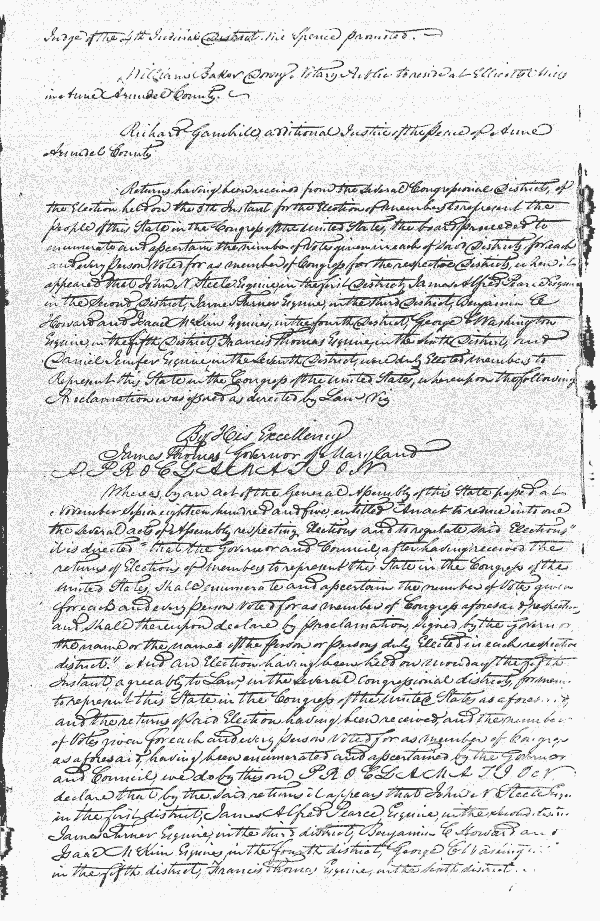 Judge of the 4th Judicial District. vice Spence promoted.
William Baker Dorsey. Notary Public to reside at Ellicotts Mills
in Anne Arundel County.
Richard Gambrill, additional Justice of the Peace of Anne
Arundel County
Returns having been received from the Several Congressional Districts, of
the Election held on the 5th Instant for the Election of members to represent the
people of this State in the Congress of the United States, the board proceeded to
enumerate and ascertain the number of Votes given in each of said Districts, for each
and every Person Voted for as member of Congress for the respective Districts, when it
appeared that John N Steele Esquire, in the first District, James Alfred Pearce Esquire
in the Second District, James Turner Esquire, in the third District, Benjamin C
Howard and Isaac McKim Esquires, in the fourth District, George C Washington
Esquire, in the fifth District, Francis Thomas Esquire, in the sixth District, and
Daniel Jenifer Esquire, in the Seventh District, were duly Elected members to
Represent this State in the Congress of the United States, whereupon the following
Proclamation was issued as directed by Law Viz
By His Excellency
James Thomas Governor of Maryland
A PROCLAMATION
Whereas, by an act of the General Assembly of this State passed at
November Session eighteen hundred and five, entitled "An act to reduce into one
the Several acts of Assembly respecting Elections and to regulate said Elections"
it is directed "that the Governor and Council, after having received the
returns of Elections of members to represent this State in the Congress of the
United States, Shall enumerate and ascertain the number of Votes given
for each and every person Voted for as member of Congress aforesaid respectively
and, Shall thereupon declare by proclamation, signed by the Governor
the name or the names of the person or persons duly Elected in each respective
district." And an Election having been held on monday the fifth
Instant, agreeably to Law, in the Several Congressional districts, for members
to represent this State in the Congress of the United States as afores
and the returns of said Election having been received, and the number
of Votes given for each and every person Voted for as member of Congress
as aforesaid, having been enumerated and ascertained by the Governor
and Council, we do by this our PROCLAMATION
declare that by the said returns it appears that John N Steele Esqr.
in the first district, James Alfred Pearce Esquire, in the second
James Turner Esquire, in the third district, Benjamin C Howard and
Isaac McKim Esquires, in the fourth district, George C Washing
in the fifth district, Francis Thomas Esquire, in the sixth district